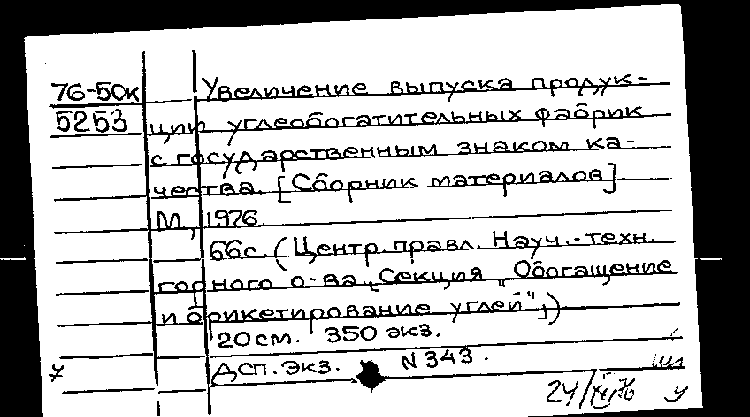 76-50к Увеличение выпуска продук-
5253 ции углеобогатительных фабрик
с государственным знаком ка-
чества. [Сборник материалов]
М, 1976
66с. (Центр. правл. Науч.-техн.
горного о-ва „Секция „Обогащение
и брикетирование углей",)
20см. 350 экз.
Дсп. экз. N 343.